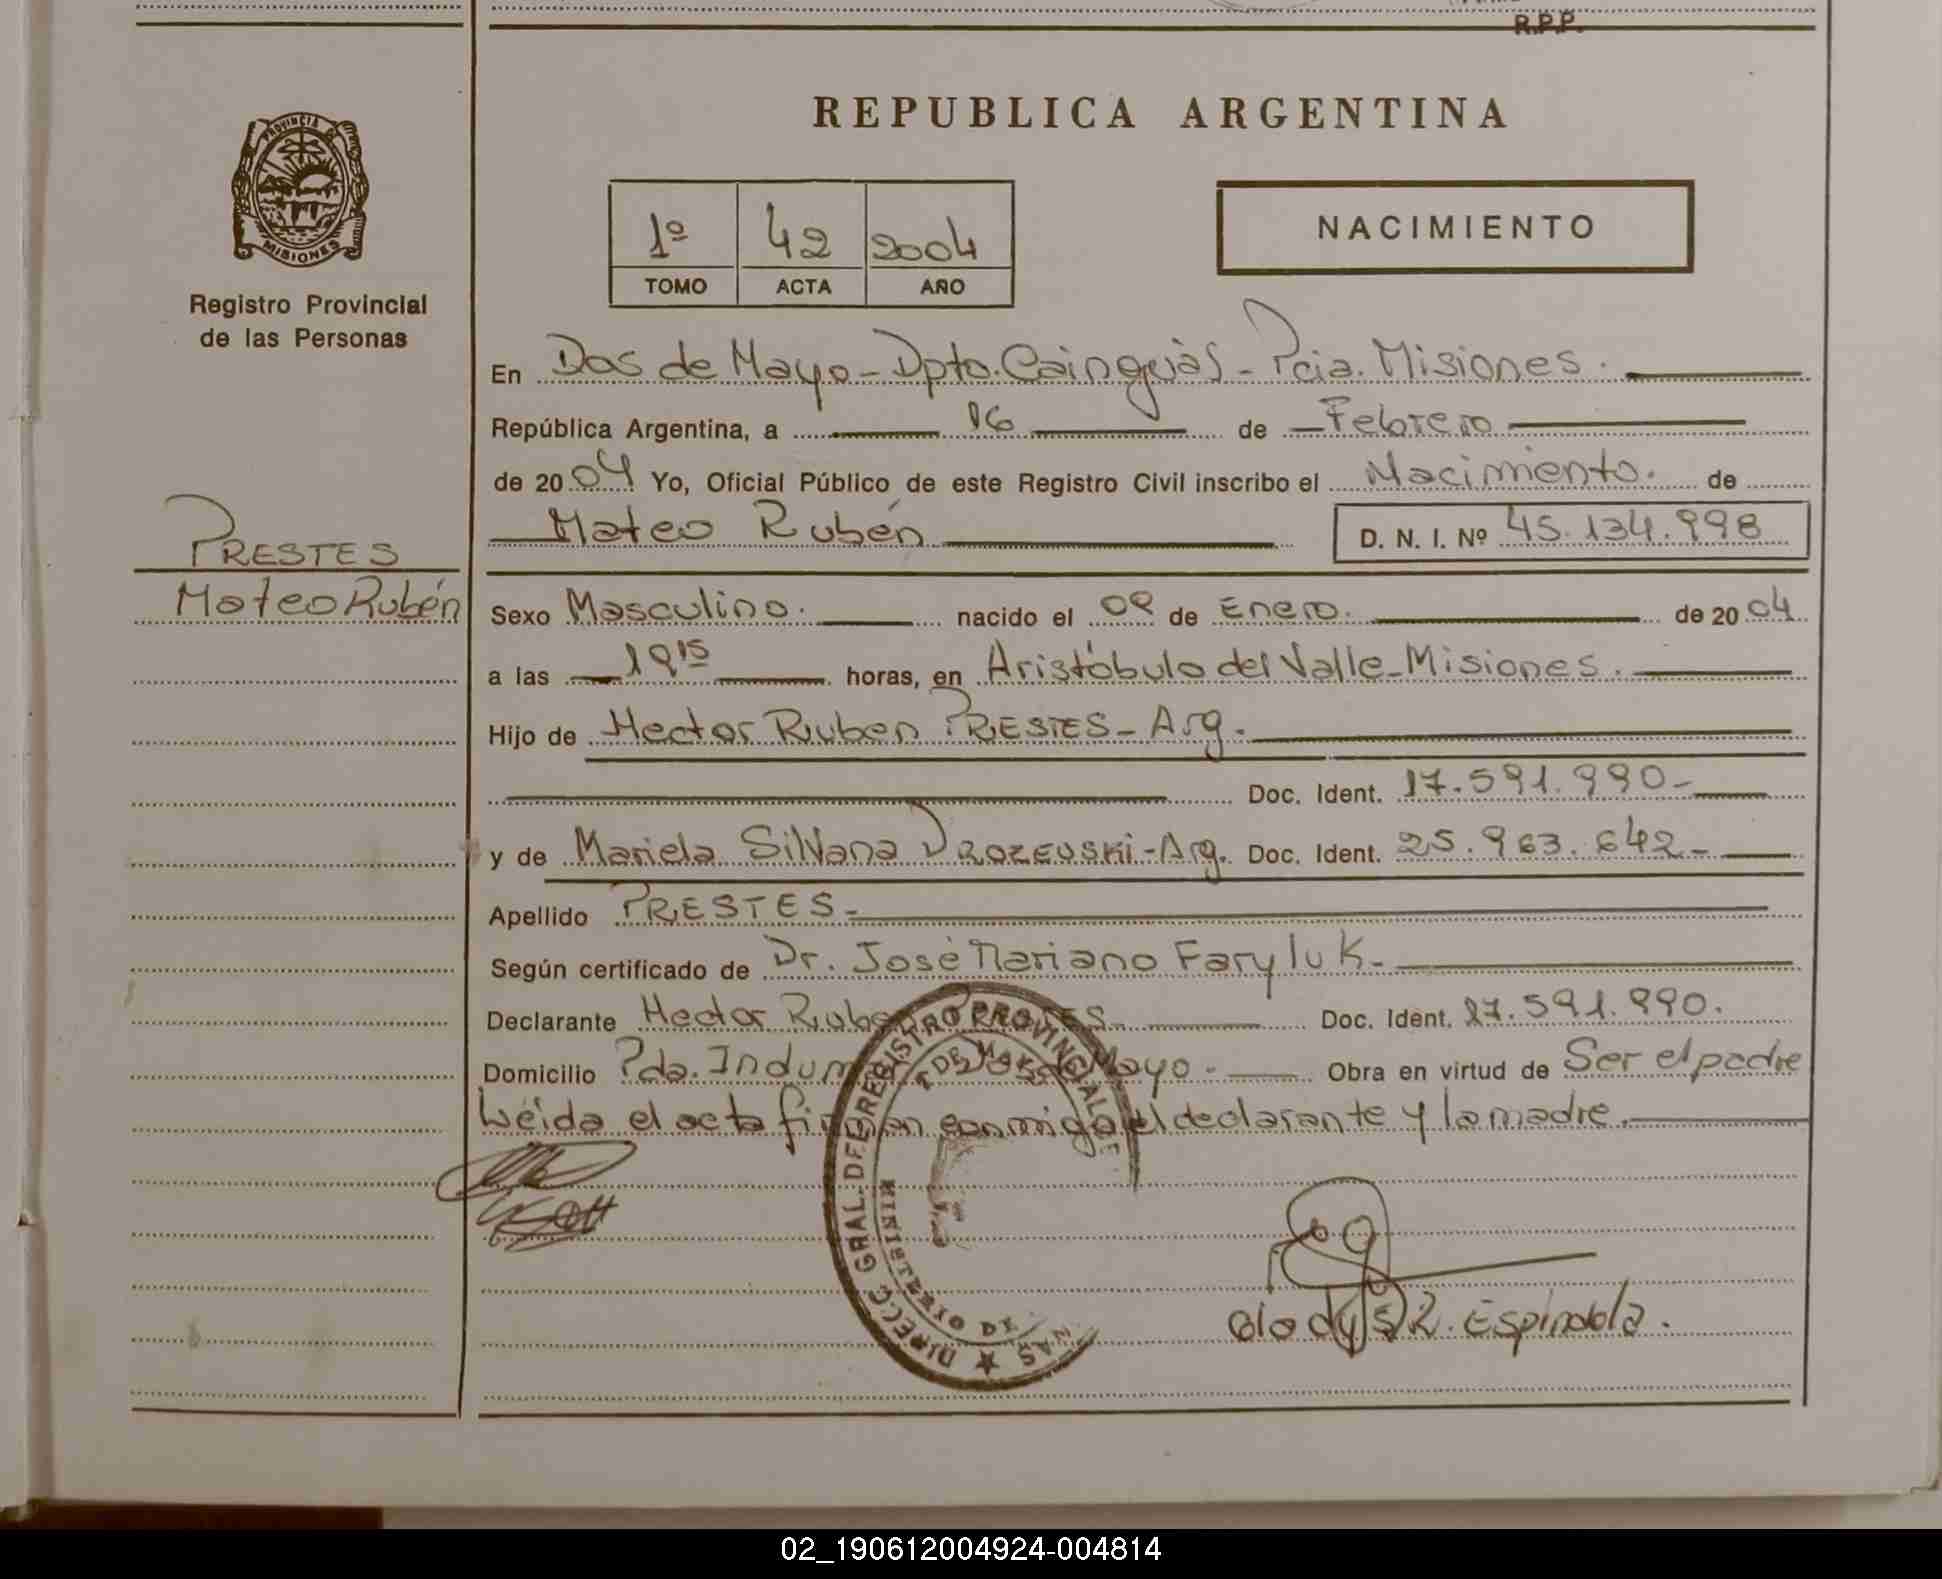 R.P.P.
REPUBLICA ARGENTINA
PROVINCIA DE
MISIONES
Registro Provincial
de las Personas
1º 42 2004
TOMO ACTA AÑO
NACIMIENTO
En Dos de Mayo - Dpto. Cainguás - Pcia. Misiones.
República Argentina, a 16 de Febrero
de 2004 Yo, Oficial Público de este Registro Civil inscribo el Nacimiento. de
Mateo Rubén D. N. I. Nº 45.134.998
PRESTES
Mateo Rubén
Sexo Masculino. nacido el de Enero. de 2004
a las horas, en Aristóbulo del Valle - Misiones.
Hijo de Hector Ruben PRESTES - Arg.
Doc. Ident. 17.591.990-
y de Mariela Silvana DROZEUSKi - Arg. Doc. Ident. 25.963.642-
Apellido PRESTES-
Según certificado de Dr. José Mariano Faryluk-
Declarante Hector Doc. Ident. 17.591.990.
Domicilio Pda. Mayo - Obra en virtud de Ser el padre
Leída el acta firman conmigo el declarante y la madre.
DIRECC. GRAL. DEL REGISTRO PROVINCIAL DE
MINISTERIO DE
R. Espindola.
02_190612004924-004814